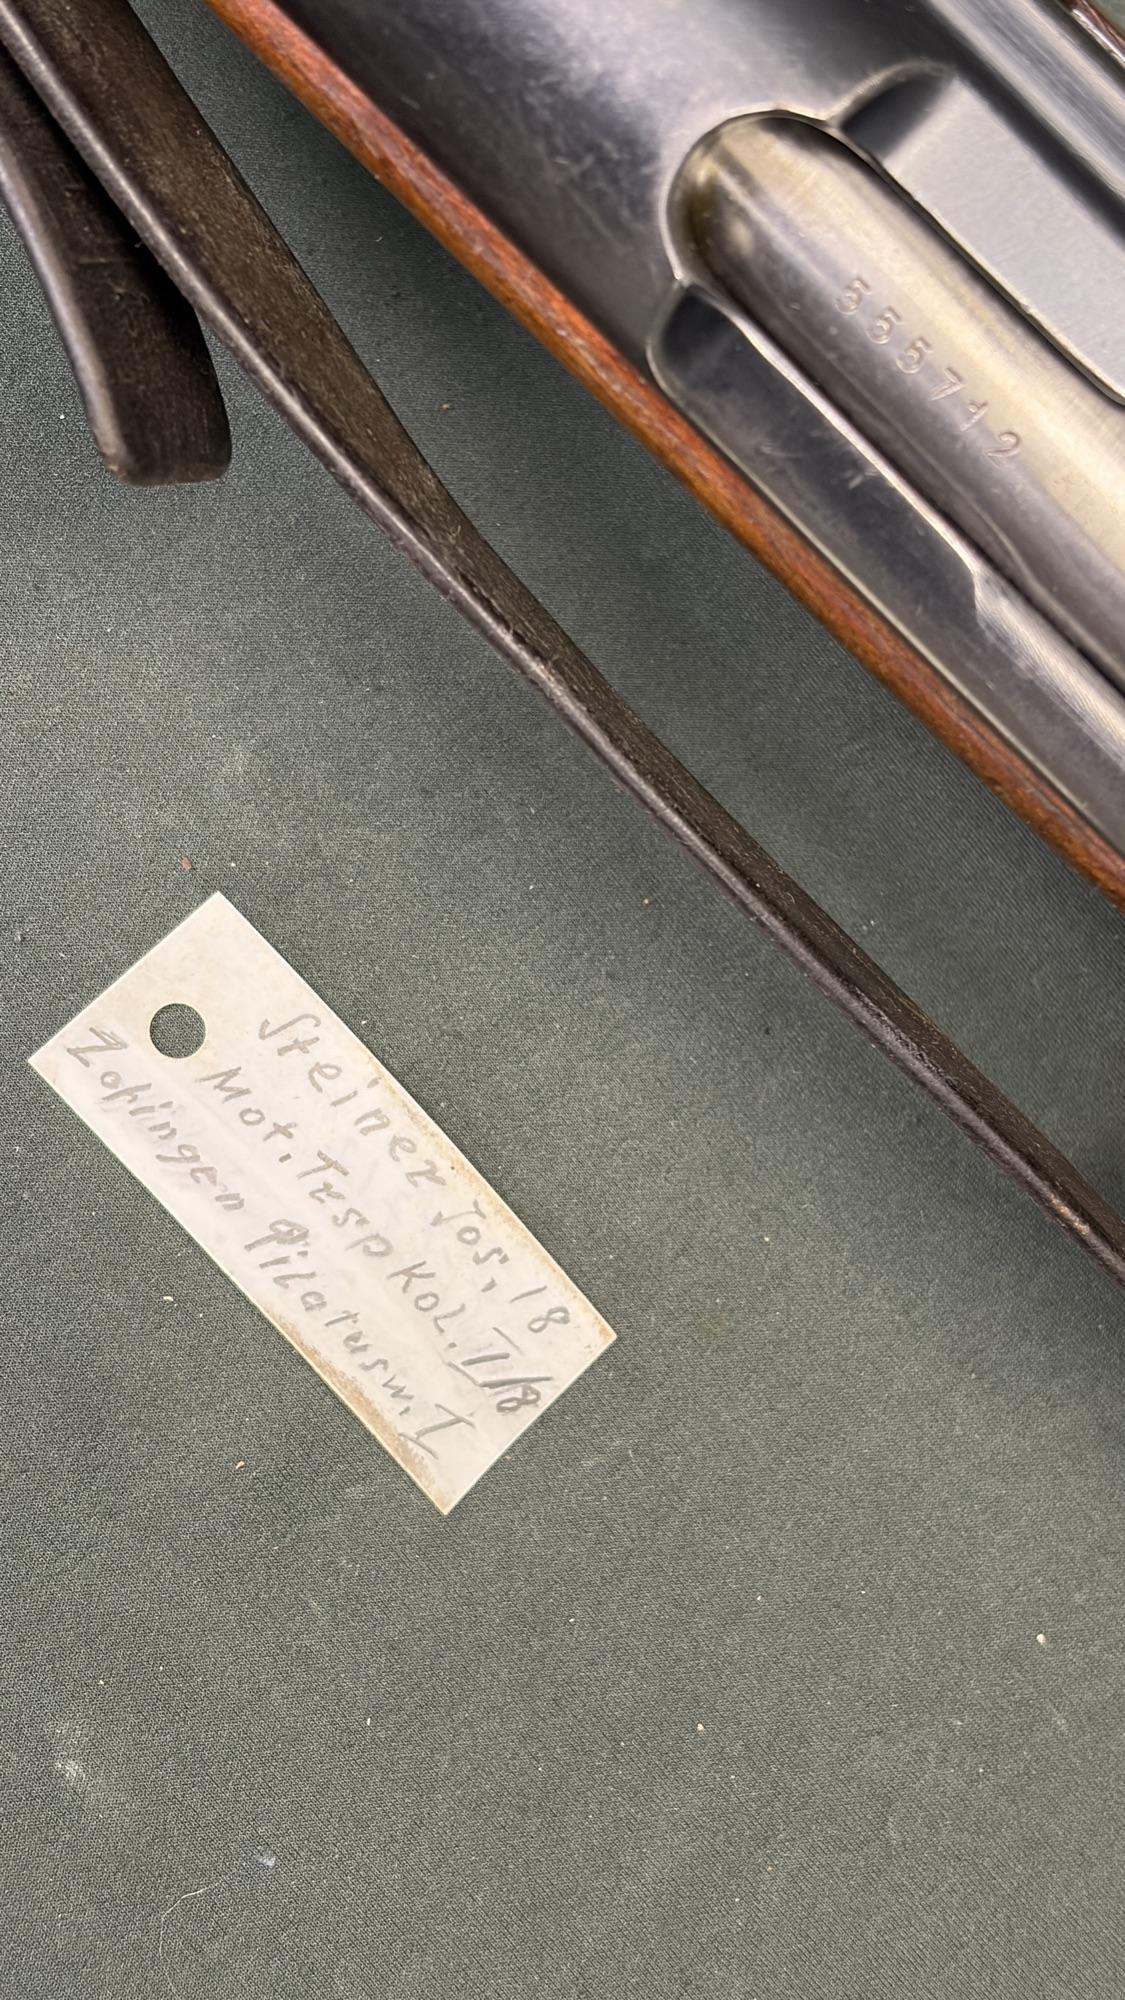 555712
Steiner Jos, 18
Mot. Trsp Kol. I/8
Zofingen Pilatusw. I